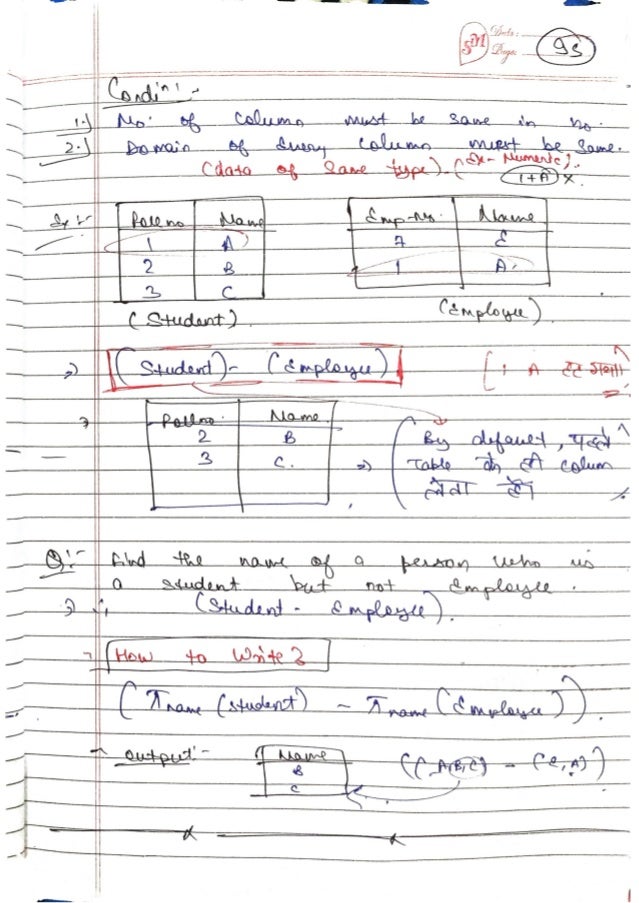 SM Date:
Page: 95
Condin:-
1.) No. of column must be same in no.
2.) Domain of every column must be same.
(data of same type). (Ex- Numeric).
1+A x
Ex:-
Rollno Name
1 A
2 B
3 C
(Student).
Emp-No. Name
7 E
1 A.
(Employee)
⇒ (Student) - (Employee)
[1 A हट गया]
Rollno. Name.
2 B
3 C.
⇒ By default, पहले
Table के ही column
लेता है।
Q:- Find the name of a person who is
a student but not Employee.
⇒ (Student - Employee).
How to Write?
(π name (Student) - π name (Employee)).
Output:-
Name
B
C
((A,B,C) - (E,A))